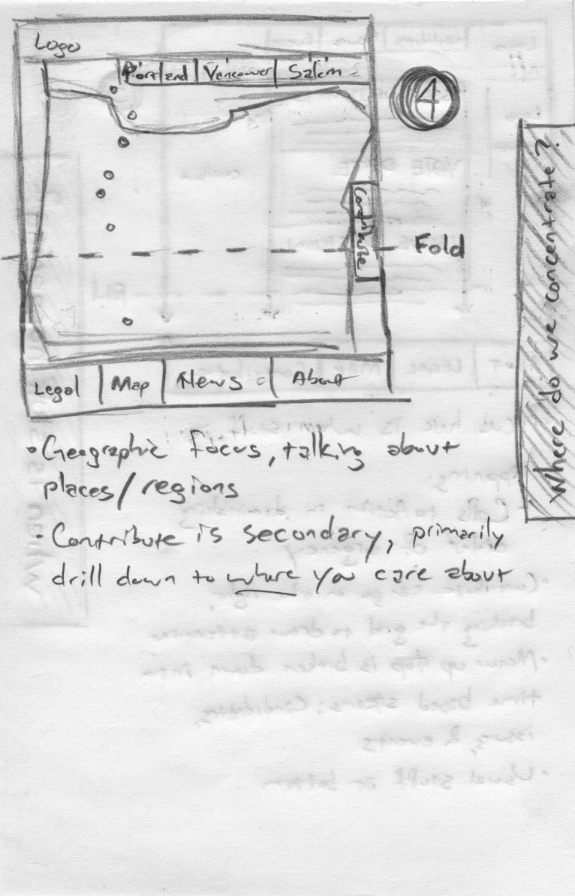 Logo
Portland Vancouver Salem
4
Contribute
Fold
Where do we concentrate?
Legal Map News About
• Geographic focus, talking about
places/regions
• Contribute is secondary, primarily
drill down to where you care about